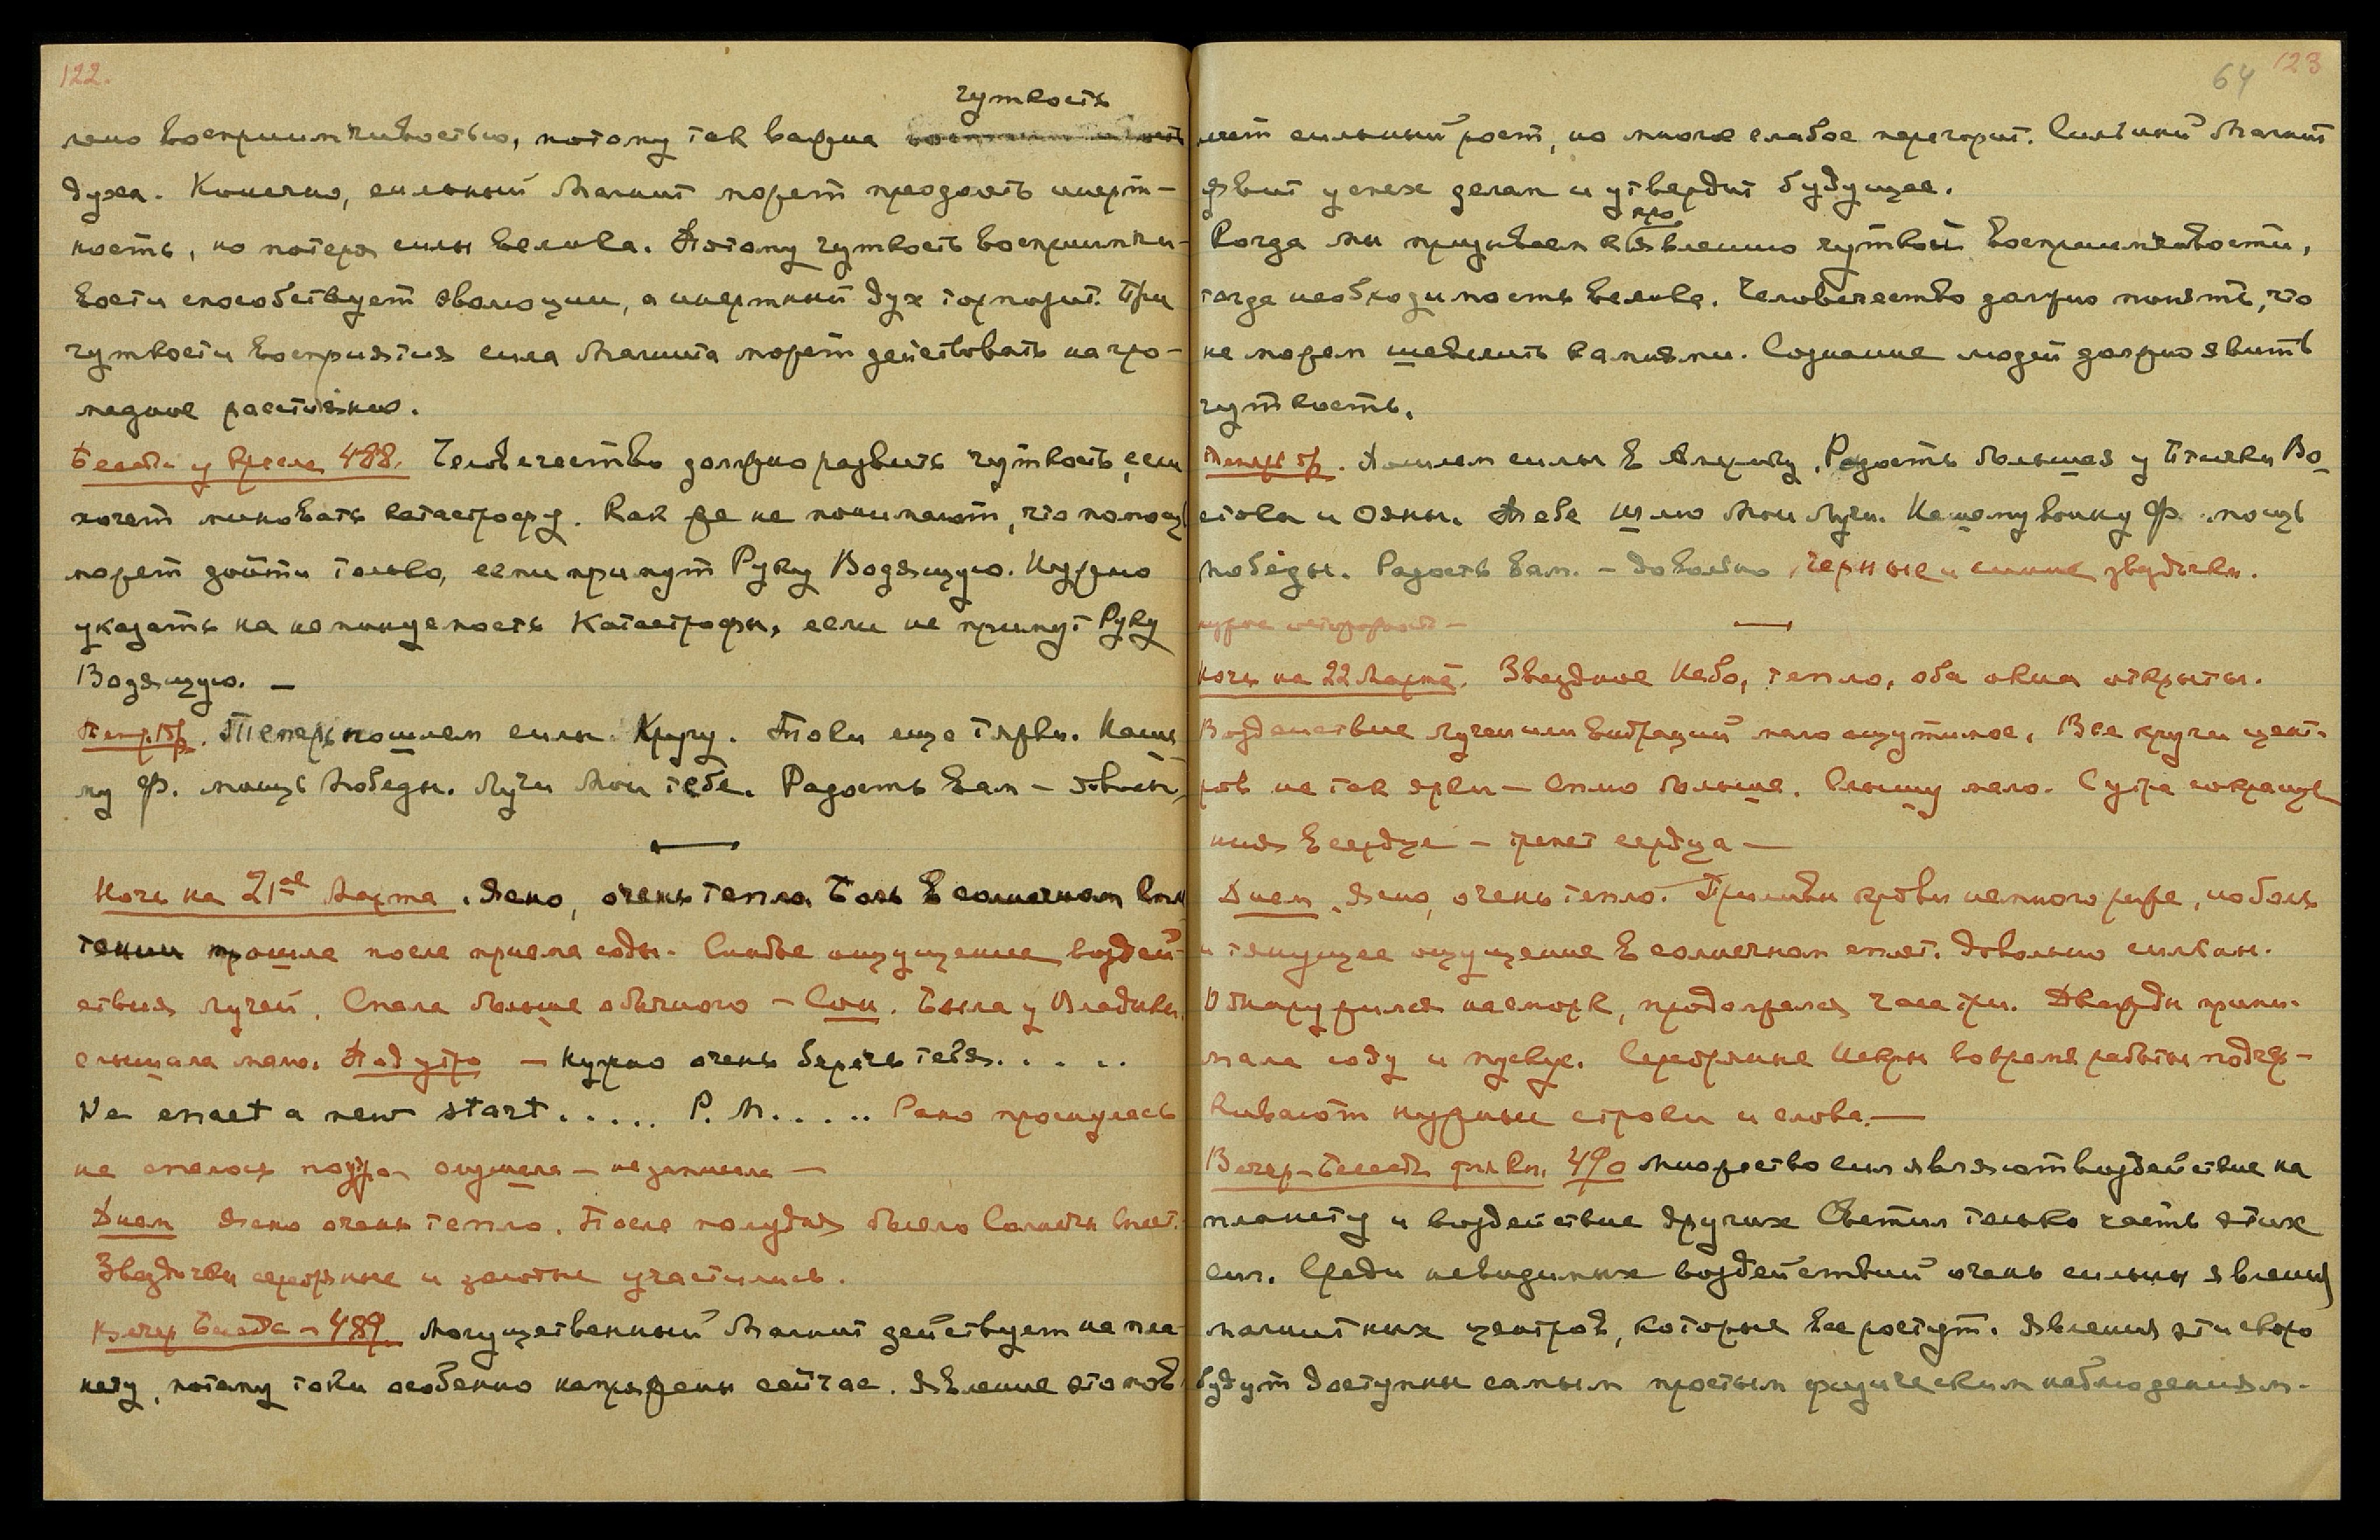 122.
чуткость
лено восприимчивостью, потому так важна восприимчивость
духа. Конечно, сильный Магнит может преодолеть инерт-
ность, но потеря силы велика. Потому чуткость восприимчи-
вости способствует эволюции, а инертный дух тормозит. При
чуткости восприятия сила Магнита может действовать на гро-
мадное расстояние.
Беседа у Кресла 488. Человечество должно развить чуткость, если
хочет миновать катастрофу. Как же не понимают, что помощь
может дойти только, если примут Руку Водящую. Нужно
указать на неминуемость Катастрофы, если не примут Руку
Водящую. —
Теперь пошлем силы Кругу. Токи еще тяжки. Наше-
му Ф. мощь победы. Лучи Мои тебе. Радость вам — довольно
Ночь на 21ое Марта. Ясно, очень тепло. Боль в солнечном спле-
тении прошла после приема соды. Слабое ощущение воздей-
ствия лучей. Спала больше обычного — Сон. Была у Владыки,
слышала мало. Под утро — нужно очень беречь тебя. . . . .
We enact a new start..... Р. М..... Рано проснулась
не спалось
Днем Ясно очень тепло. После полудня было Солнечн. сплет.
Звездочки серебряные и золотые участились.
Вечер Беседа — 489. Могущественный Магнит действует на пла-
нету, потому токи особенно напряжены сейчас. Явление это
64 123
сильный рост, но многое слабое перегорит. Сильный Магнит
явит успех делам и утвердит будущее.
про
Когда мы призываем к явлению чуткой восприимчивости,
тогда необходимость велика. Человечество должно понять, что
не можем шевелить камнями. Сознание людей должно явить
чуткость.
Пошлем силы в Америку. Радость большая у Птички Во-
стока и Ояны. Тебе шлю Мои Лучи. Нашему воину Ф. мощь
победы. Радость вам. — довольно. Черные и синие звездочки.
Ночь на 22 Марта. Звездное небо, тепло, оба окна открыты.
Воздействие лучей или вибраций мало ощутимое. Все круги цент-
ров не так ярки — спло больше. Слышу мало. С утра сокраще-
ния в сердце — трепет сердца —
Днем. Ясно, очень тепло. Приливы крови немного реже, но боль
и тянущее ощущение в солнечном сплет. довольно сильны.
Обнаружился насморк, продолжался часа три. Дважды прини-
мала соду и мускус. Серебряные Искры во время работы подчер-
кивают нужные строки и слова. —
Вечер — Беседа 490 Множество сил являют воздействие на
планету и воздействие других Светил только часть этих
сил. Среди невидимых воздействий очень сильны явления
магнитных центров, которые все растут. Явления эти скоро
будут доступны самым простым физическим наблюдениям.